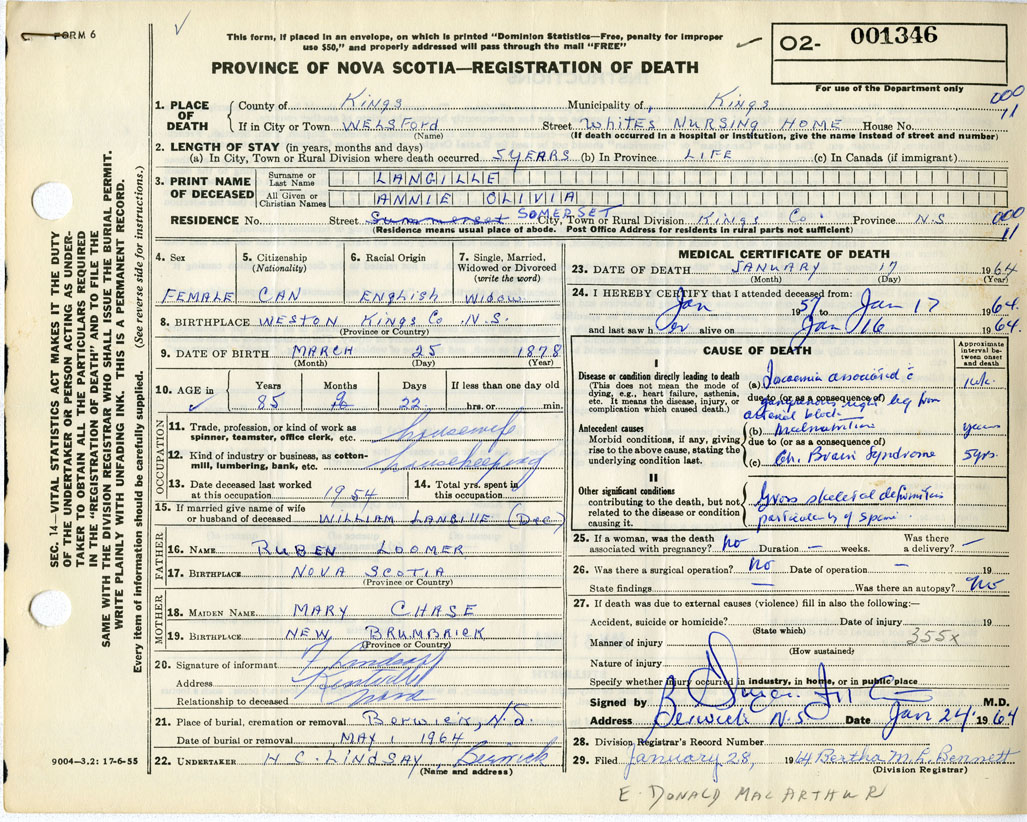 FORM 6
This form, if placed in an envelope, on which is printed "Dominion Statistics—Free, penalty for improper
use $50," and properly addressed will pass through the mail "FREE"
02- 001346
For use of the Department only
PROVINCE OF NOVA SCOTIA—REGISTRATION OF DEATH
SEC. 14—VITAL STATISTICS ACT MAKES IT THE DUTY
OF THE UNDERTAKER OR PERSON ACTING AS UNDER-
TAKER TO OBTAIN ALL THE PARTICULARS REQUIRED
IN THE "REGISTRATION OF DEATH" AND TO FILE THE
SAME WITH THE DIVISION REGISTRAR WHO SHALL ISSUE THE BURIAL PERMIT.
WRITE PLAINLY WITH UNFADING INK. THIS IS A PERMANENT RECORD.
Every item of information should be carefully supplied. (See reverse side for instructions.)
1. PLACE OF DEATH County of Kings Municipality of, Kings 000 11
If in City or Town WELSFord (Name) Street WHITES NURSING HOME House No.
(If death occurred in a hospital or institution, give the name instead of street and number)
2. LENGTH OF STAY (in years, months and days)
(a) In City, Town or Rural Division where death occurred 5 YEARS (b) In Province LIFE (c) In Canada (if immigrant)
3. PRINT NAME OF DECEASED Surname or Last Name LANGILLE
All Given or Christian Names ANNIE OLIVIA
RESIDENCE No. Street Summerset SOMERSET City, Town or Rural Division Kings Co. Province N.S 000 11
(Residence means usual place of abode. Post Office Address for residents in rural parts not sufficient)
4. Sex FEMALE
5. Citizenship (Nationality) CAN
6. Racial Origin English
7. Single, Married, Widowed or Divorced (write the word) Widow
8. BIRTHPLACE WESTON Kings Co N.S.
(Province or Country)
9. DATE OF BIRTH MARCH 25 1878
(Month) (Day) (Year)
10. AGE in Years 85 Months 9 Days 22 If less than one day old hrs. or min.
OCCUPATION
11. Trade, profession, or kind of work as spinner, teamster, office clerk, etc. housewife
12. Kind of industry or business, as cotton-mill, lumbering, bank, etc. housekeeping
13. Date deceased last worked at this occupation 1954
14. Total yrs. spent in this occupation
15. If married give name of wife or husband of deceased WILLIAM LANGILLE (Dec)
FATHER
16. NAME RUBEN LOOMER
17. BIRTHPLACE NOVA SCOTIA
(Province or Country)
MOTHER
18. MAIDEN NAME MARY CHASE
19. BIRTHPLACE NEW BRUMBRICK
(Province or Country)
20. Signature of informant
Address Kentville
Relationship to deceased
21. Place of burial, cremation or removal Berwick, N.S.
Date of burial or removal MAY 1 1964
22. UNDERTAKER H C. LINDSAY, Berwick
(Name and address)
9004—3.2: 17-6-55
MEDICAL CERTIFICATE OF DEATH
23. DATE OF DEATH JANUARY 17 1964
(Month) (Day) (Year)
24. I HEREBY CERTIFY that I attended deceased from:
Jan 1957 Jan 17 1964
and last saw her alive on Jan 16 1964
CAUSE OF DEATH
Approximate interval between onset and death
I
Disease or condition directly leading to death
(This does not mean the mode of dying, e.g., heart failure, asthenia, etc. It means the disease, injury, or complication which caused death.)
(a) associated c 1 wk.
due to (or as a consequence of)
gangrenous right leg from
arterial block
Antecedent causes
Morbid conditions, if any, giving rise to the above cause, stating the underlying condition last.
(b) Malnutrition years
due to (or as a consequence of)
(c) Ch. Brain Syndrome 5 yrs.
II
Other significant conditions
contributing to the death, but not related to the disease or condition causing it.
Gross skeletal deformities
particularly of spine.
25. If a woman, was the death associated with pregnancy? no Duration — weeks. Was there a delivery? —
26. Was there a surgical operation? No Date of operation —
State findings — Was there an autopsy? No
27. If death was due to external causes (violence) fill in also the following:—
Accident, suicide or homicide? (State which) Date of injury 19
Manner of injury (How sustained) 355x
Nature of injury
Specify whether injury occurred in industry, in home, or in public place
Signed by M.D.
Address Berwick N.S Date Jan 24 1964
28. Division Registrar's Record Number
29. Filed January 28, 1964 Bertha M. L. Bennett
(Division Registrar)
E. DONALD MACARTHUR